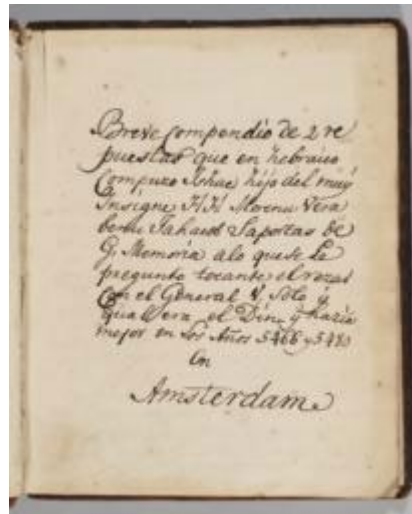 Breve Compendio de 2 re
puestas que en hebraico
Compuzo Ishac hijo del muy
Insigne H H Morenu Vera
benu Jahacob Saportas de
G. Memoria alo que se le
pregunto tocante el rezar
Con el General & solo y
qual era el Din, q haria
mejor en los Años 5466 y 5480
en
Amsterdam